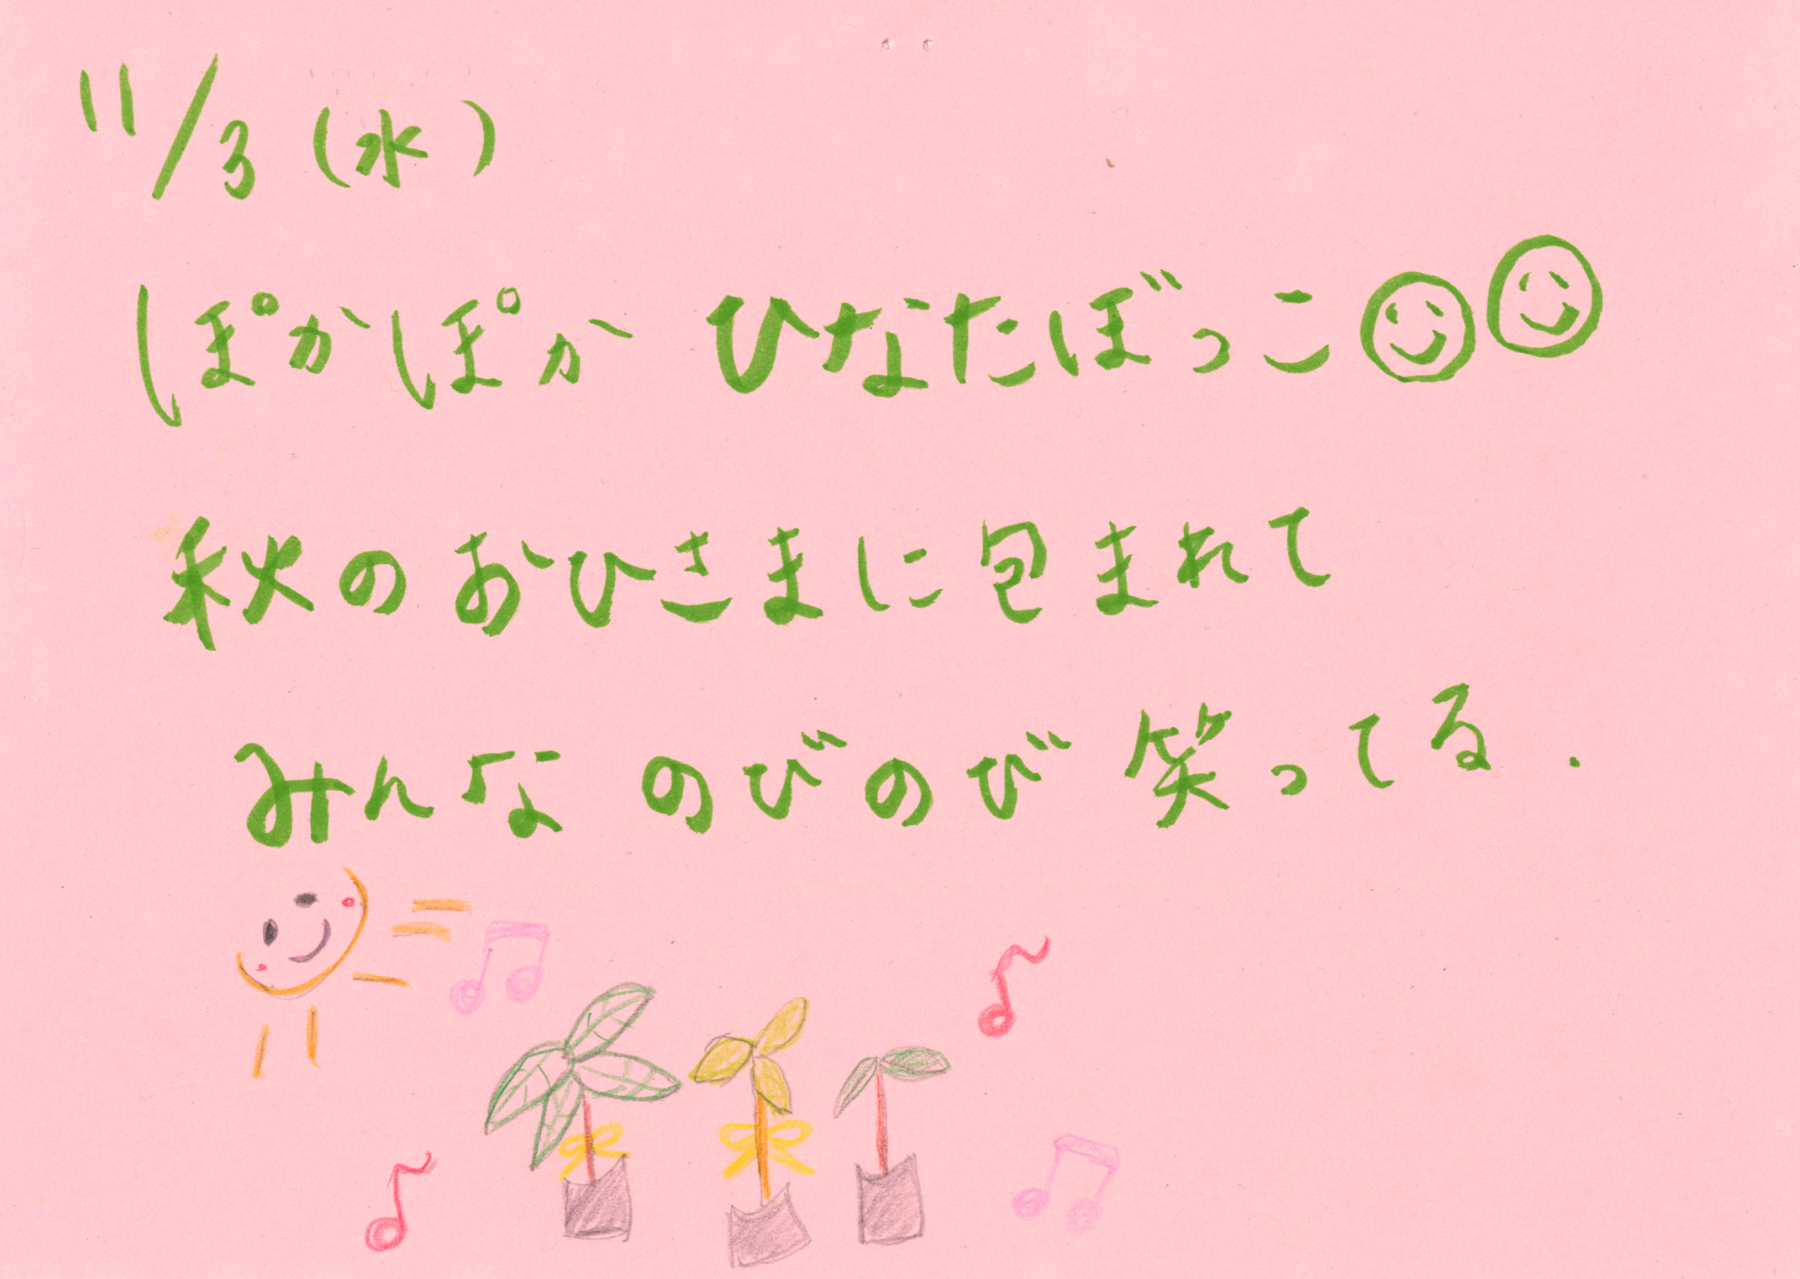 11/3(水)
ぽかぽか ひなたぼっこ
秋のおひさまに包まれて
みんな のびのび 笑ってる.